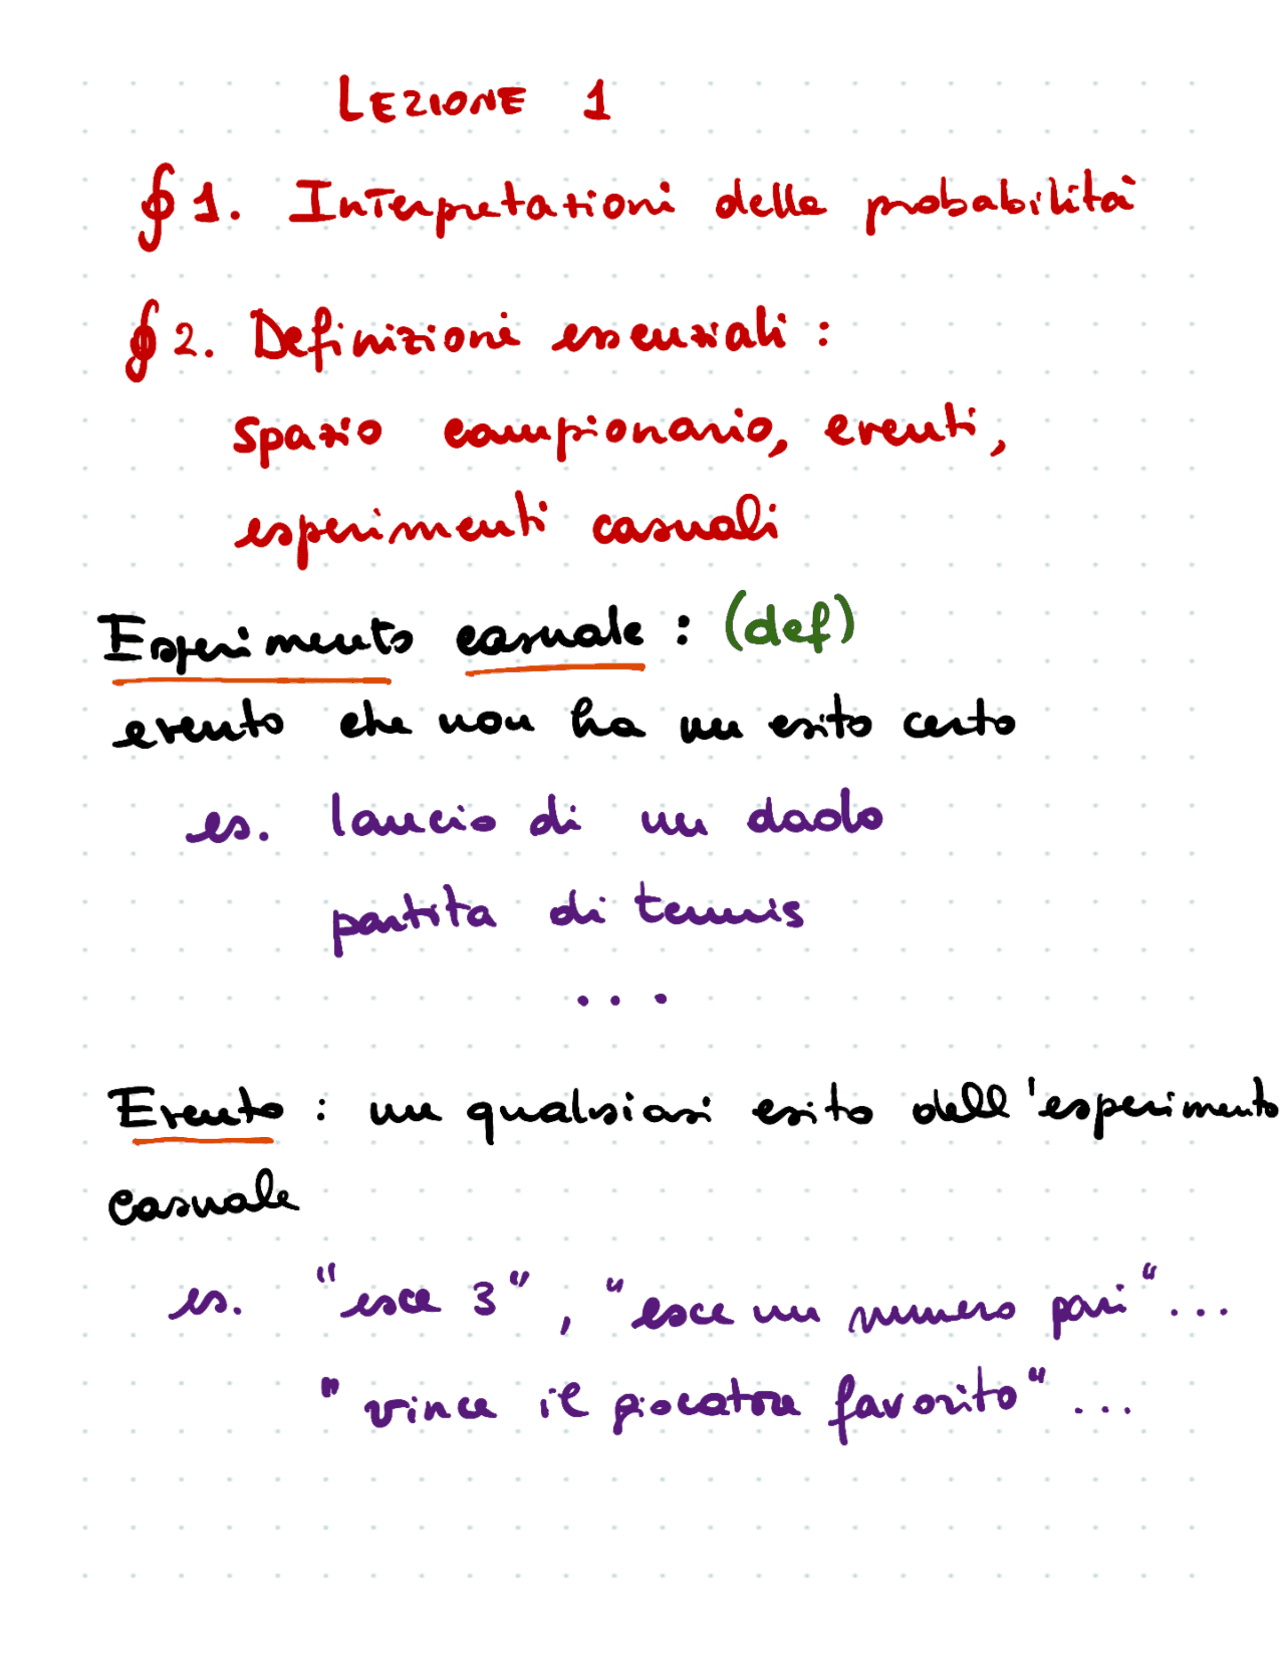 LEZIONE 1
§ 1. Interpretazioni della probabilità
§ 2. Definizioni essenziali :
spazio campionario, eventi,
esperimenti casuali
Esperimento casuale : (def)
evento che non ha un esito certo
es. lancio di un dado
partita di tennis
...
Evento : un qualsiasi esito dell'esperimento
casuale
es. "esce 3", "esce un numero pari"...
"vince il giocatore favorito"...